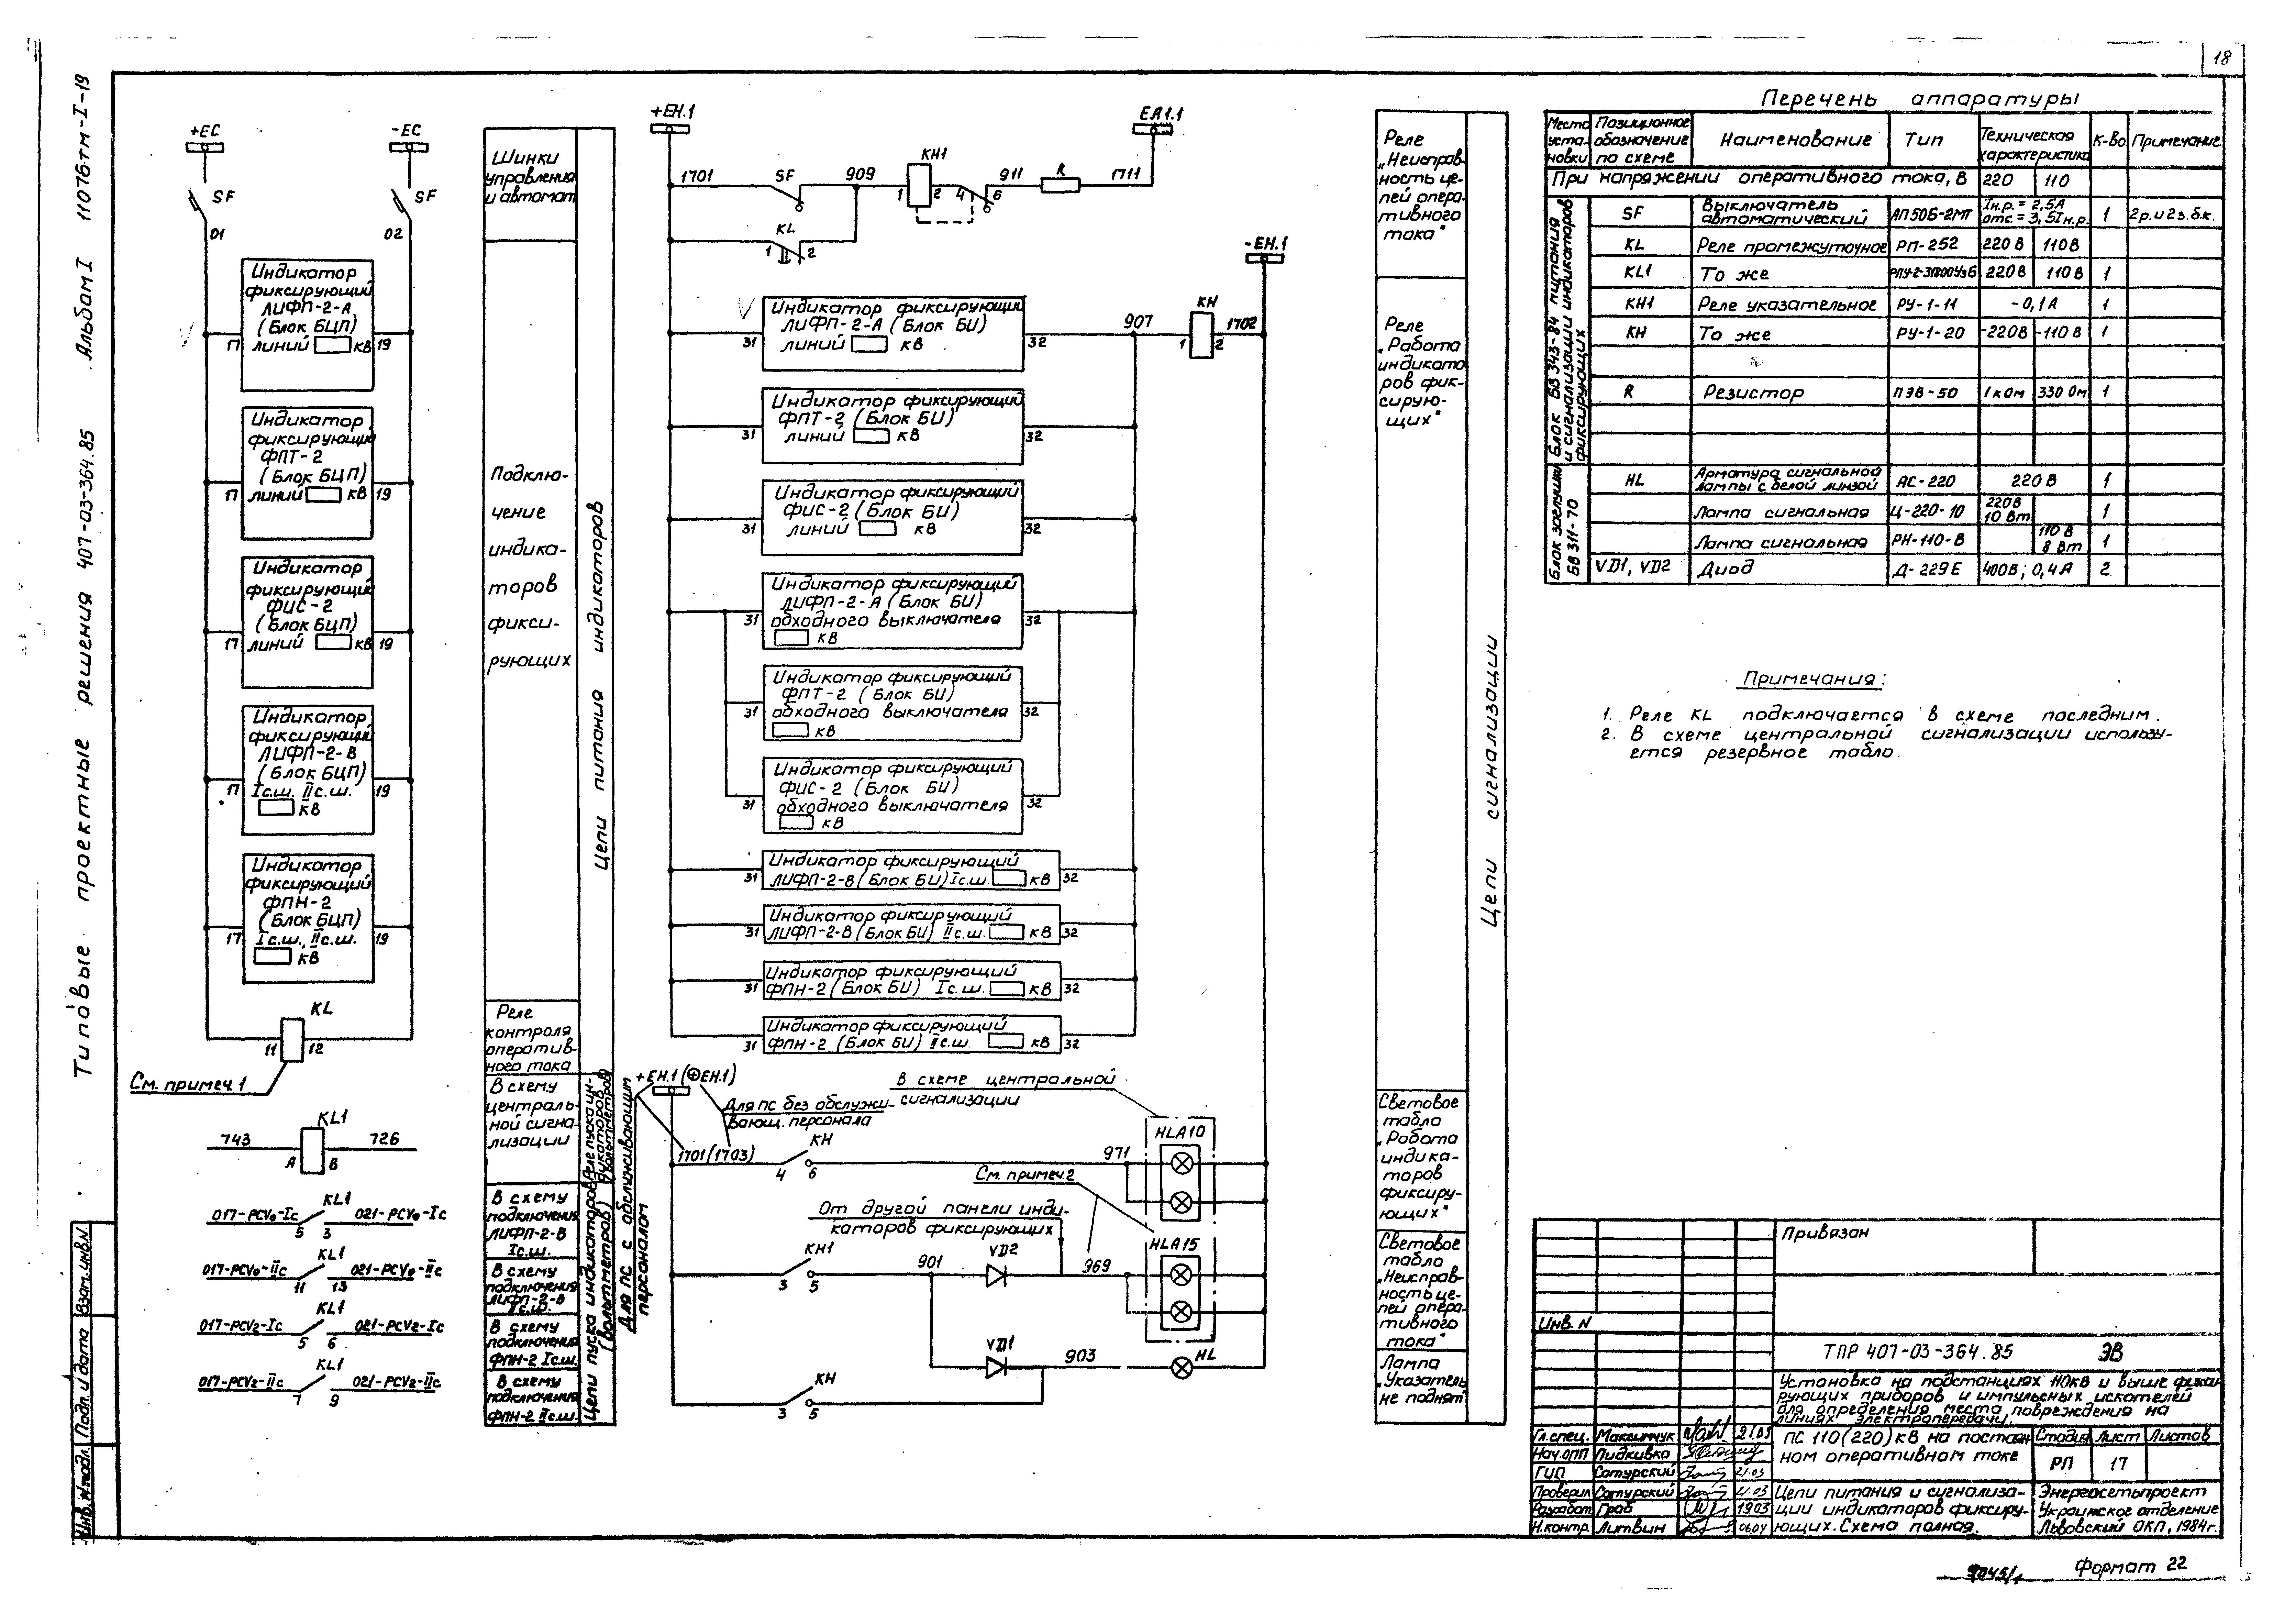 18
Типовые проектные решения 407-03-364.85 Альбом I 11076тм-I-19
+EC
-EC
SF
SF
01
02
Индикатор
фиксирующий
ЛИФП-2-А
(Блок БЦП)
линий кВ
17
19
Индикатор
фиксирующий
ФПТ-2
(Блок БЦП)
линий кВ
17
19
Индикатор
фиксирующий
ФИС-2
(Блок БЦП)
линий кВ
17
19
Индикатор
фиксирующий
ЛИФП-2-В
(Блок БЦП)
Iс.ш. IIс.ш.
кВ
17
19
Индикатор
фиксирующий
ФПН-2
(Блок БЦП)
Iс.ш., IIс.ш.
кВ
17
19
KL
11
12
См. примеч.1
KL1
743
726
A
B
KL1
017-PCV₀-Iс
021-PCV₀-Iс
5
3
KL1
017-PCV₀-IIс
021-PCV₀-IIс
11
13
KL1
017-PCV₂-Iс
021-PCV₂-Iс
5
6
KL1
017-PCV₂-IIс
021-PCV₂-IIс
7
9
Шинки
управления
и автомат
Подклю-
чение
индика-
торов
фикси-
рующих
Реле
контроля
оператив-
ного тока
В схему
централь-
ной сигна-
лизации
В схему
подключения
ЛИФП-2-В
Iс.ш.
В схему
подключения
ЛИФП-2-В
IIс.ш.
В схему
подключения
ФПН-2 Iс.ш.
В схему
подключения
ФПН-2 IIс.ш.
Цепи питания индикаторов
Реле пуска ин-
дикаторов
(вольтметров)
Цепи пуска индикаторов
(вольтметров)
Для ПС с обслуживающим
персоналом
+EH.1
EA1.1
1701
SF
909
KH1
1
2
4
6
911
R
1711
KL
1
2
-EH.1
Индикатор фиксирующий
ЛИФП-2-А (Блок БИ)
линий кВ
31
32
907
KH
1
2
1702
Индикатор фиксирующий
ФПТ-2 (Блок БИ)
линий кВ
31
32
Индикатор фиксирующий
ФИС-2 (Блок БИ)
линий кВ
31
32
Индикатор фиксирующий
ЛИФП-2-А (Блок БИ)
обходного выключателя
кВ
31
32
Индикатор фиксирующий
ФПТ-2 (Блок БИ)
обходного выключателя
кВ
31
32
Индикатор фиксирующий
ФИС-2 (Блок БИ)
обходного выключателя
кВ
31
32
Индикатор фиксирующий
ЛИФП-2-В (Блок БИ) Iс.ш. кВ
31
32
Индикатор фиксирующий
ЛИФП-2-В (Блок БИ) IIс.ш. кВ
31
32
Индикатор фиксирующий
ФПН-2 (Блок БИ) Iс.ш. кВ
31
32
Индикатор фиксирующий
ФПН-2 (Блок БИ) IIс.ш. кВ
31
32
+EH.1 (⊕EH.1)
Для ПС без обслужи-
вающ. персонала
В схеме центральной
сигнализации
1701 (1703)
KH
4
6
971
HLA10
См. примеч.2
От другой панели инди-
каторов фиксирующих
KH1
3
5
901
VD2
969
HLA15
VD1
903
HL
KH
3
5
Реле
„Неисправ-
ность це-
пей опера-
тивного
тока"
Реле
„Работа
индикато
ров фик-
сирую-
щих"
Световое
табло
„Работа
индика-
торов
фиксиру-
ющих"
Световое
табло
„Неисправ-
ность це-
пей опера-
тивного
тока"
Лампа
„Указатель
не поднят"
Цепи сигнализации
Перечень аппаратуры
Место уста- новки Позиционное обозначение по схеме Наименование Тип Техническая характеристика К-во Примечание
При напряжении оперативного тока, В 220 110
Блок БВ 343-84 питания и сигнализации индикаторов фиксирующих
SF Выключатель автоматический АП50Б-2МТ Iн.р. = 2,5А отс. = 3,5Iн.р. 1 2р.и2з.б.к.
KL Реле промежуточное РП-252 220В 110В
KL1 То же РПУ-2-31800У3Б 220В 110В 1
KH1 Реле указательное РУ-1-11 -0,1А 1
KH То же РУ-1-20 -220В -110В 1
R Резистор ПЭВ-50 1кОм 330 Ом 1
Блок заглушки БВ 311-70
HL Арматура сигнальной лампы с белой линзой АС-220 220В 1
Лампа сигнальная Ц-220-10 220В 10Вт 1
Лампа сигнальная РН-110-В 110В 8Вт 1
VD1, VD2 Диод Д-229Е 400В; 0,4А 2
Примечания:
1. Реле KL подключается в схеме последним.
2. В схеме центральной сигнализации использу-
ется резервное табло.
Привязан
Инв. N
ТПР 407-03-364.85 ЭВ
Установка на подстанциях 110кВ и выше фикси
рующих приборов и импульсных искателей
для определения места повреждения на
линиях электропередачи.
Гл.спец. Максимчук 21.03
Нач.ОПП Лидкивка
ГИП Сатурский 21.03
Проверил Сатурский 21.03
Разработ Граб 1903
Н.контр. Литвин 06.04
ПС 110(220)кВ на постоян
ном оперативном токе
Стадия Лист Листов
РП 17
Цепи питания и сигнализа-
ции индикаторов фиксиру-
ющих. Схема полная.
Энергосетьпроект
Украинское отделение
Львовский ОКП, 1984г.
Взам.инв.N
Подп. и дата
Инв. N подл.
Формат 22